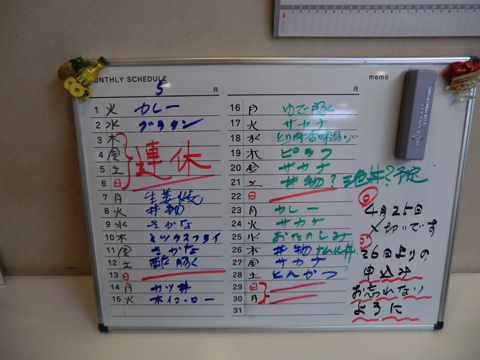 MONTHLY SCHEDULE
5 月
1 火 カレー
2 水 グラタン
3 木
4 金
5 土
6 日
連休
7 月 生姜焼
8 火 丼物
9 水 さかな
10 木 ミックスフライ
11 金 さかな
12 土 酢豚
13 日
14 月 カツ丼
15 火 ホイコーロー
月
16 月 ゆで豚
17 火 サカナ
18 水
19 木 ピラフ
20 金 サカナ
21 土 丼物?
22 日
23 月 カレー
24 火 サカナ
25 水 おたのしみ
26 木 丼物
27 金 サカナ
28 土 とんかつ
29 日
30 月
31
memo
4月25日
〆切りです
26日よりの
申込み
お忘れない
ように